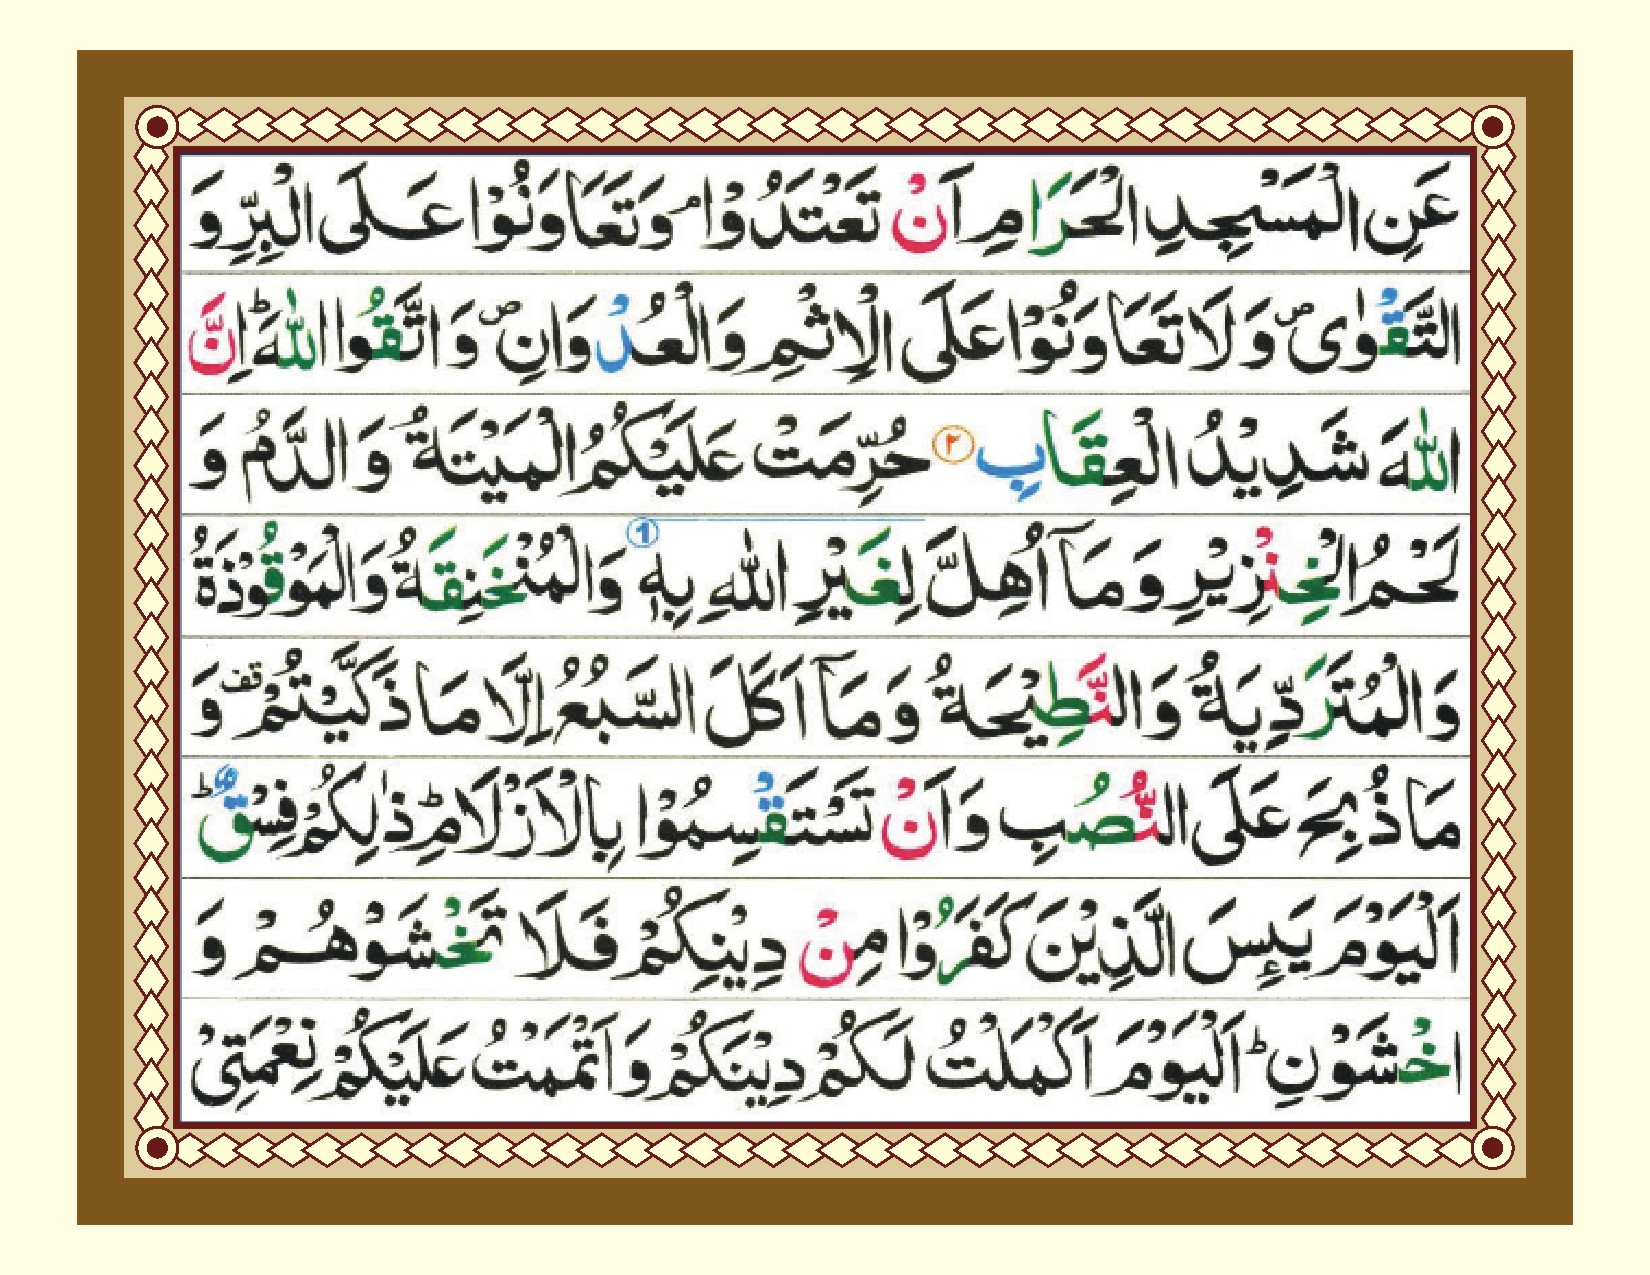 عَنِ الْمَسْجِدِ الْحَرَامِ اَنْ تَعْتَدُوْا ۘ وَتَعَاوَنُوْا عَلَى الْبِرِّ وَ
التَّقْوٰى ۪ وَلَا تَعَاوَنُوْا عَلَى الْاِثْمِ وَالْعُدْوَانِ ۪ وَاتَّقُوا اللّٰهَ ؕ اِنَّ
اللّٰهَ شَدِيْدُ الْعِقَابِ ۲ حُرِّمَتْ عَلَيْكُمُ الْمَيْتَةُ وَالدَّمُ وَ
لَحْمُ الْخِنْزِيْرِ وَمَاۤ اُهِلَّ لِغَيْرِ اللّٰهِ بِهٖ 1 وَالْمُنْخَنِقَةُ وَالْمَوْقُوْذَةُ
وَالْمُتَرَدِّيَةُ وَالنَّطِيْحَةُ وَمَاۤ اَكَلَ السَّبُعُ اِلَّا مَا ذَكَّيْتُمْ قف وَ
مَا ذُبِحَ عَلَى النُّصُبِ وَاَنْ تَسْتَقْسِمُوْا بِالْاَزْلَامِ ؕ ذٰلِكُمْ فِسْقٌ ؕ
اَلْيَوْمَ يَئِسَ الَّذِيْنَ كَفَرُوْا مِنْ دِيْنِكُمْ فَلَا تَخْشَوْهُمْ وَ
اخْشَوْنِ ؕ اَلْيَوْمَ اَكْمَلْتُ لَكُمْ دِيْنَكُمْ وَاَتْمَمْتُ عَلَيْكُمْ نِعْمَتِيْ